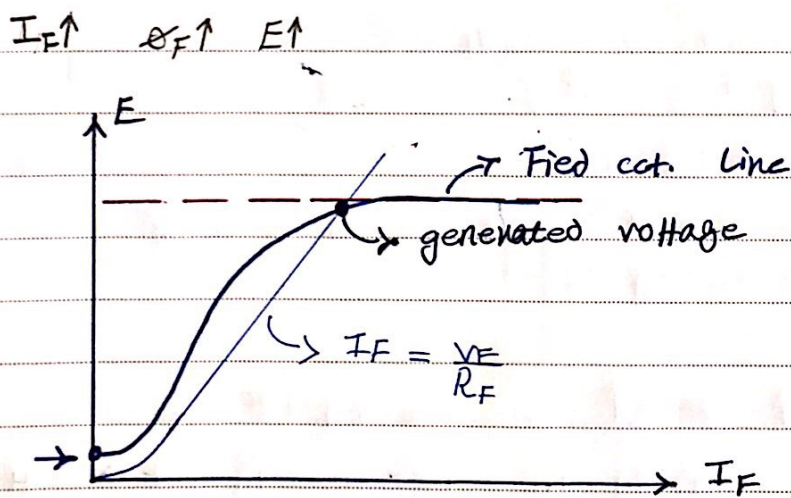 I_F↑ ø_F↑ E↑
E
Fied cat. Line
generated voltage
I_F = V_F / R_F
I_F